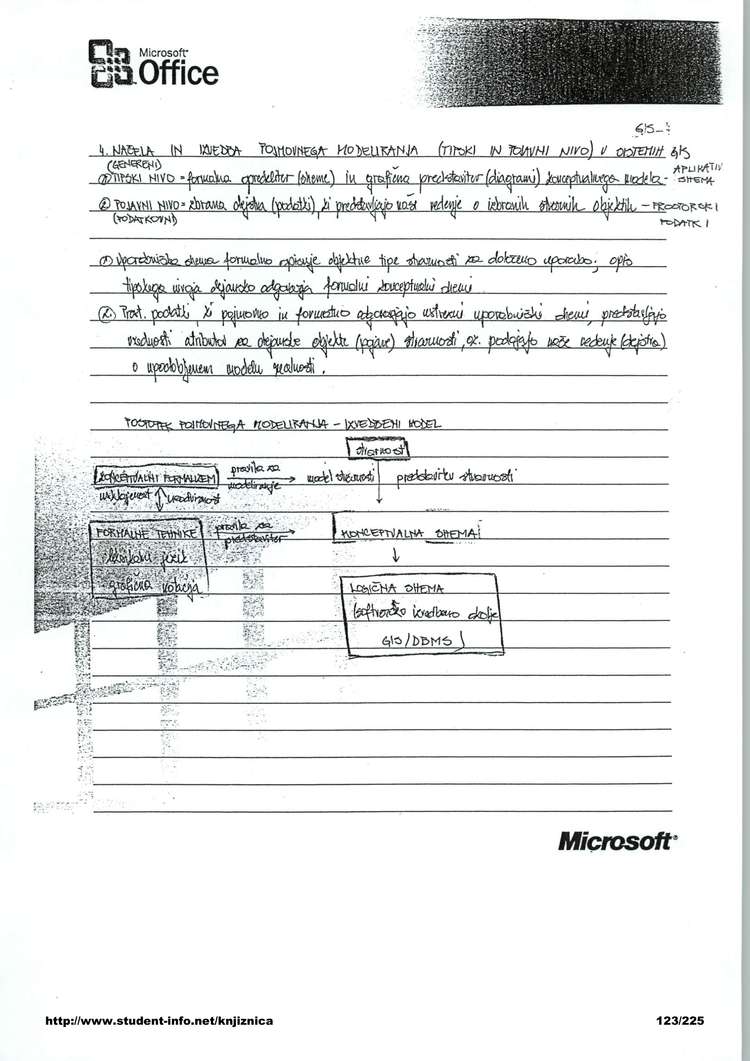 Microsoft
Office
GIS-
4. NAČELA IN IZVEDBA POJMOVNEGA MODELIRANJA (TIPSKI IN POJAVNI NIVO) V SISTEMIH GIS
(GENERENI)
① TIPSKI NIVO = formalna opredelitev (sheme) in grafična predstavitev (diagrami) konceptualnega modela - APLIKATIV SHEMA
② POJAVNI NIVO = zbrana dejstva (podatki), ki predstavljajo naše vedenje o izbranih stvarnih objektih - PROSTORSKI
(PODATKOVNI) PODATKI
① Uporabniška shema formalno opisuje objektne tipe stvarnosti za določeno uporabo; opis
tipskega nivoja dejansko odgovarja formalni konceptualni shemi.
② Prost. podatki, ki pojmovno in formatno odgovarjajo ustrezni uporabniški shemi, predstavljajo
vrednosti atributov za dejanske objekte (pojave) stvarnosti, oz. podajajo naše vedenje (dejstva)
o upodobljenem modelu realnosti.
POSTOPEK POJMOVNEGA MODELIRANJA - IZVEDBENI MODEL
stvarnost
KONCEPTUALNI FORMALIZEM pravila za modeliranje model stvarnosti predstavitev stvarnosti
usklajenost urejenost
FORMALNE TEHNIKE pravila za predstavitev KONCEPTUALNA SHEMA
leksikalni jezik
grafična notacija
LOGIČNA SHEMA
(softversko izvedbeno okolje
GIS/DBMS)
Microsoft
http://www.student-info.net/knjiznica 123/225